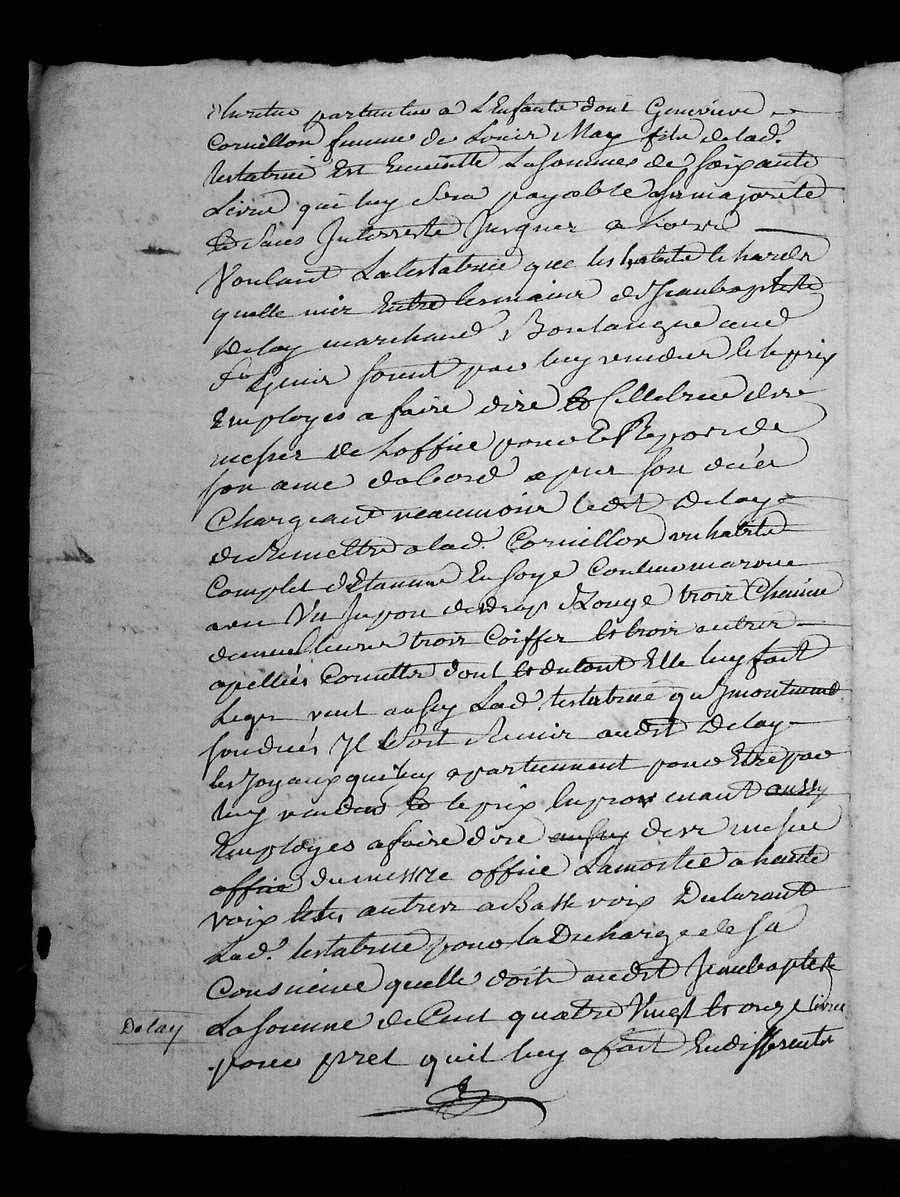 heritiere particuliere a L'Enfante dont Genevieve
Cornillon femme de Louis May fille de lad.
testatrice Est Enceinte La somme de soixante
Livres qui luy sera payable a sa majorité
Et sans Interrests jusques a lors
Voulant La testatrice que les habits et hardes
quelle a mis Entre les mains de Jean baptiste
Delay marchand Boulangé
soint par luy vendues et le prix
Employes a faire dire Et Cellebrer des
messes de Loffice pour le Repos de
son ame dabord apres son décès
Chargeant neaumoins ledit Delay
de Remettre a lad. Cornillon un habit
Complet détamine En soye Couleur maron
avec Un Jupon de drap Rouge trois Chemise
trois Coiffes Et trois autres
apellées Cornettes dont Et du tout Elle luy fait
Legat veut aussy Lad. testatrice
soient Remis audit Delay
les Joyaux qui luy apartiennent pour Etre par
luy vendus Et le prix En provenant aussy
Employes a faire dire aussy des messes
office du mesme office La moitié a haute
voix Et les autres a Basse voix Declarant
Lad. testatrice pour la Decharge de sa
Consience quelle doit audit Jean baptiste
Delay La somme de Cent quatre Vingt Et onze livres
pour pret quil luy a fait En differentes